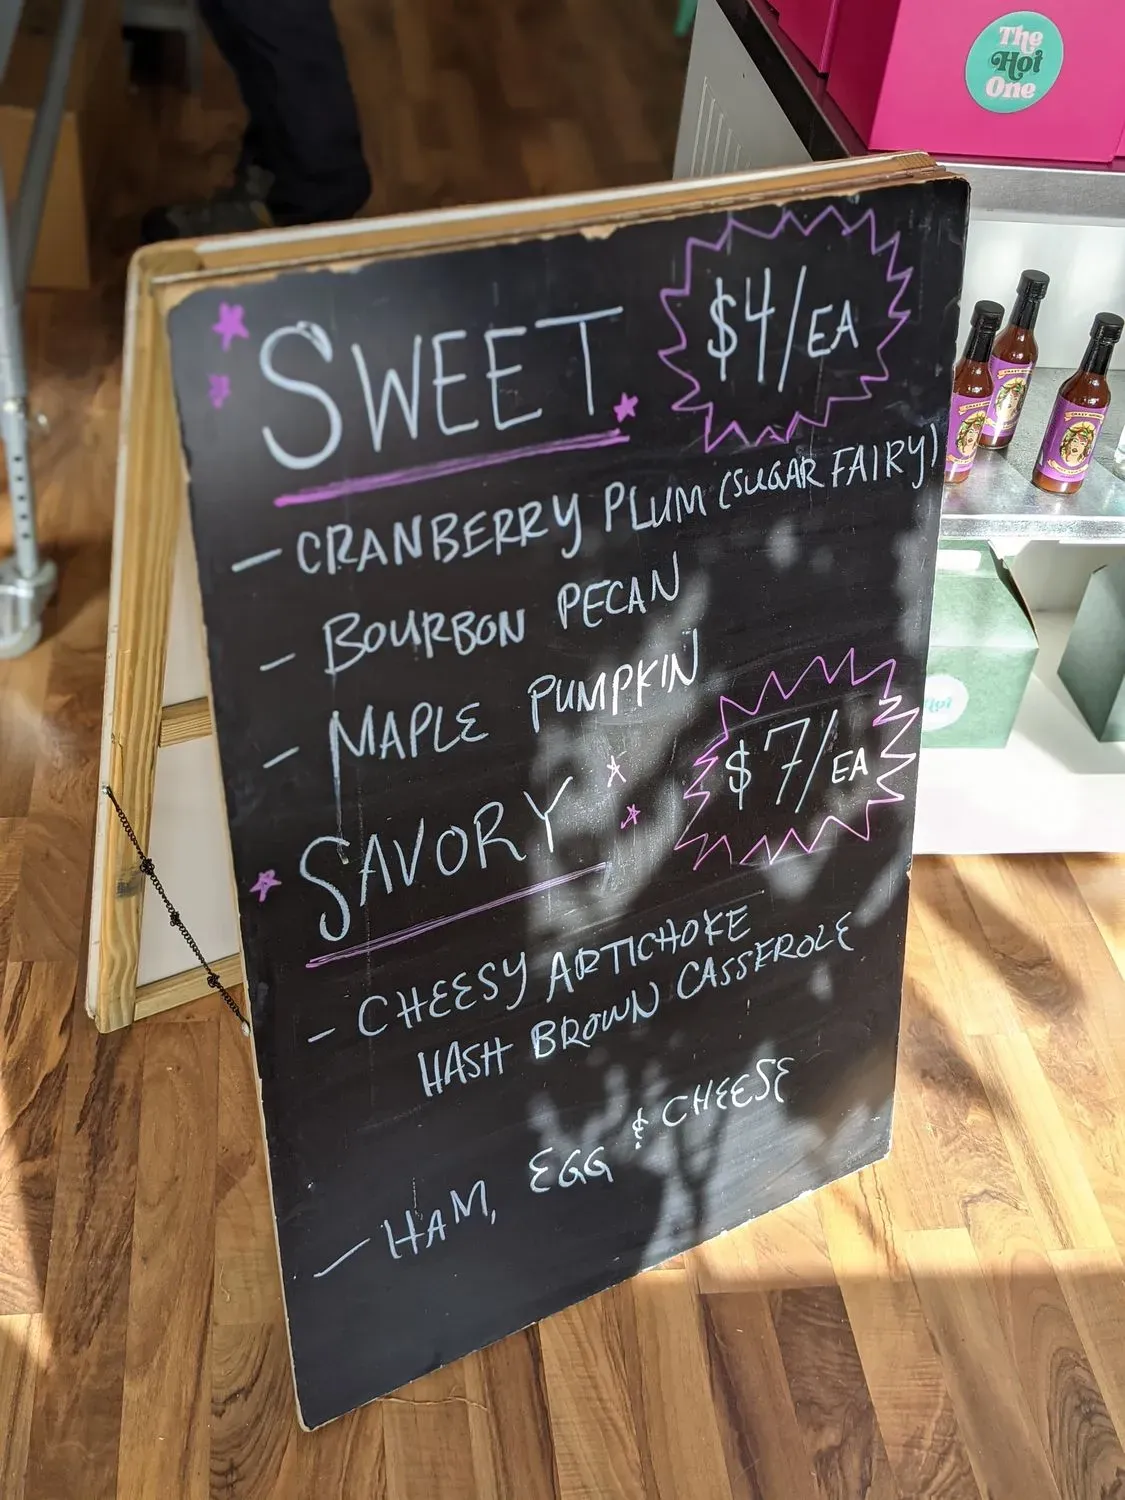 The
Hot
One
SWEET $4/EA
- CRANBERRY PLUM (SUGAR FAIRY)
- BOURBON PECAN
- MAPLE PUMPKIN
SAVORY $7/EA
- CHEESY ARTICHOKE
HASH BROWN CASSEROLE
- HAM, EGG & CHEESE
Hot